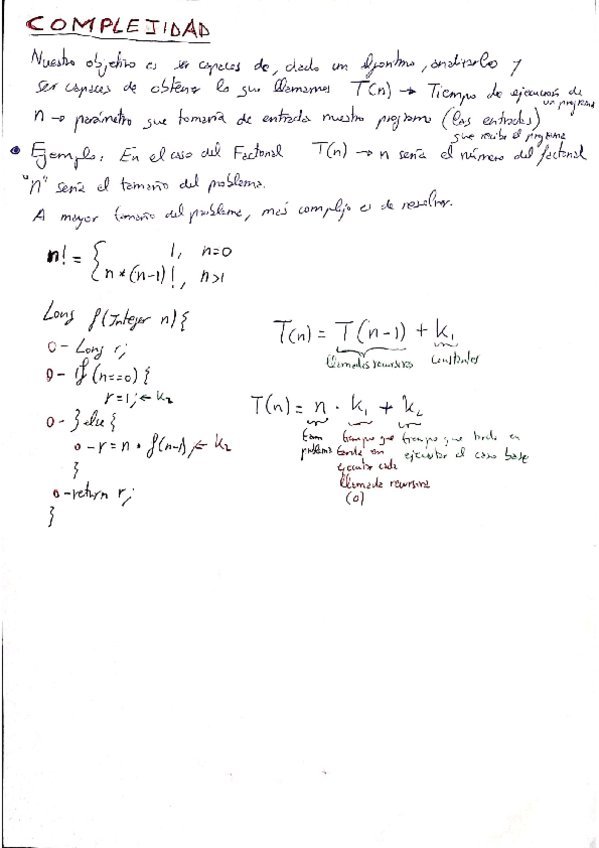 COMPLEJIDAD
Nuestro objetivo es ser capaces de, dado un algoritmo, analizarlo y
ser capaces de obtener lo que llamamos T(n) → Tiempo de ejecución de
un programa
n → parámetro que tomaría de entrada nuestro programa (las entradas)
que recibe el programa
• Ejemplo: En el caso del Factorial T(n) → n sería el número del factorial
"n" sería el tamaño del problema.
A mayor tamaño del problema, mas complejo es de resolver.
n! = { 1, n=0
n*(n-1)!, n>1
Long f(Integer n){
0- Long r;
0- if(n==0){
r=1; ← k2
0- }else{
0-r=n·f(n-1); ← k2
}
0-return r;
}
T(n) = T(n-1) + k1
llamadas recursivas constantes
T(n) = n · k1 + k2
tam problema
tiempo que tarda en ejecutar cada llamada recursiva (0)
tiempo que tarda en ejecutar el caso base